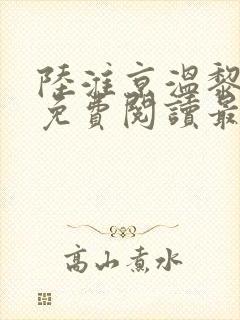 陸淮京溫黎
免費閱讀最
高山煮水